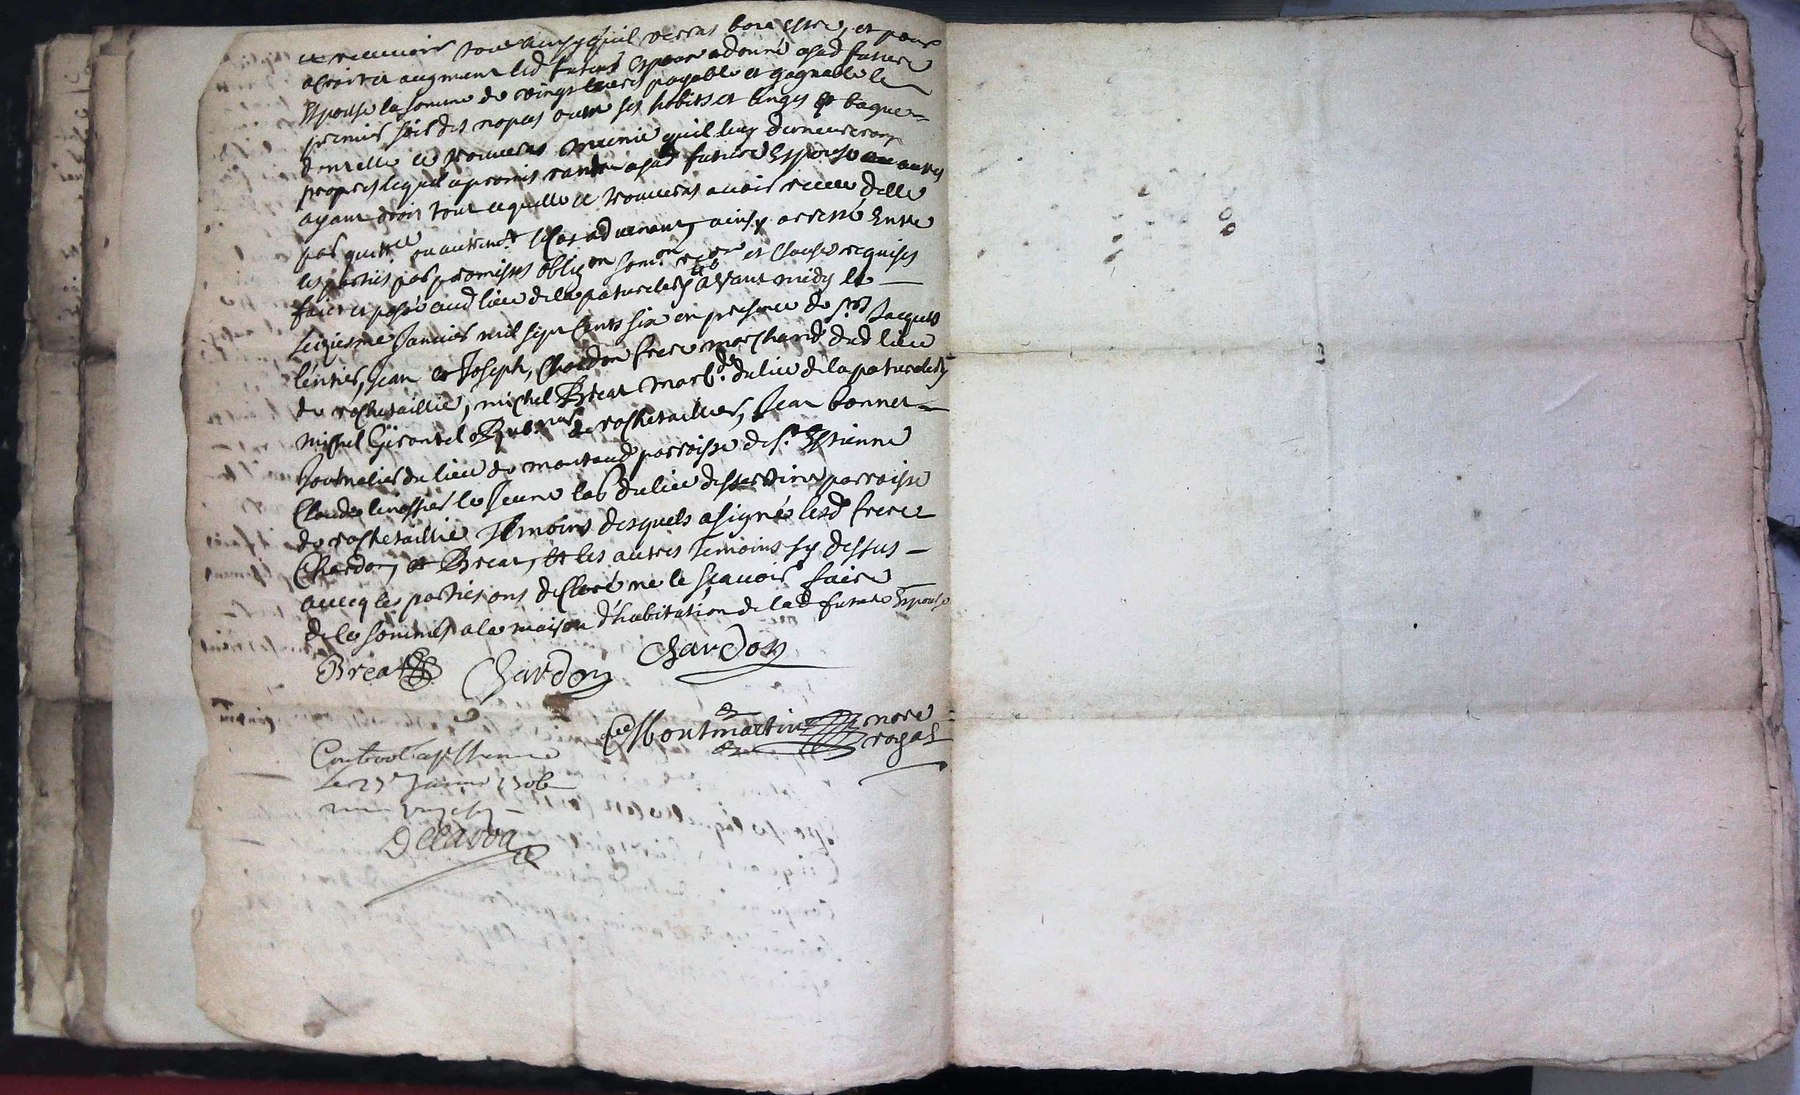 ce recevoir tout ainsy quil verras bon estre, et pour
acroit et augment led futeur espoux a donné a sad future
Espouse la somme de vingt livres payable et gagnable le
premier soir des nopces outre ses habits et linges et bague
dont elle ce trouveras munie quil luy demeureront
propres lequel a promis randre a sad future Espouse ou autres
ayant droit tout ce quelle ce trouveras avoir receu delle
par quitte ou autremt le cas advenant, ainsy arresté Entre
les parties par promisses oblig.on soum.on ren.on et clauses requises
faict et passé aud lieu de la paturelery avant midy le
seiziesme Janvier mil sept cents six en presence de s.rs Jacques
Jean et Joseph, Chardon frere marchands dud lieu
de rochetaillie, michel Breat march.d du lieu de la paturelery
michel Girontel de rochetaillier, Jean bonnet
Journalier du lieu de montaud parroisse de s.t Estienne
Claude linossier le Jeune lab du lieu dessertine parroisse
de rochetaillie Temoins desquels a signé lesd frere
Chardon, et Breat, et les autres Temoins sy dessus
avecq les parties ont desclaré ne le sçavoir faire
de les sommés a la maison d'habitation de lad future Espouse
Breat Chardon Chardon
Montmartin no.re
royal
Controllé a st Estienne
le 27e Janvier 1706
Delavoa